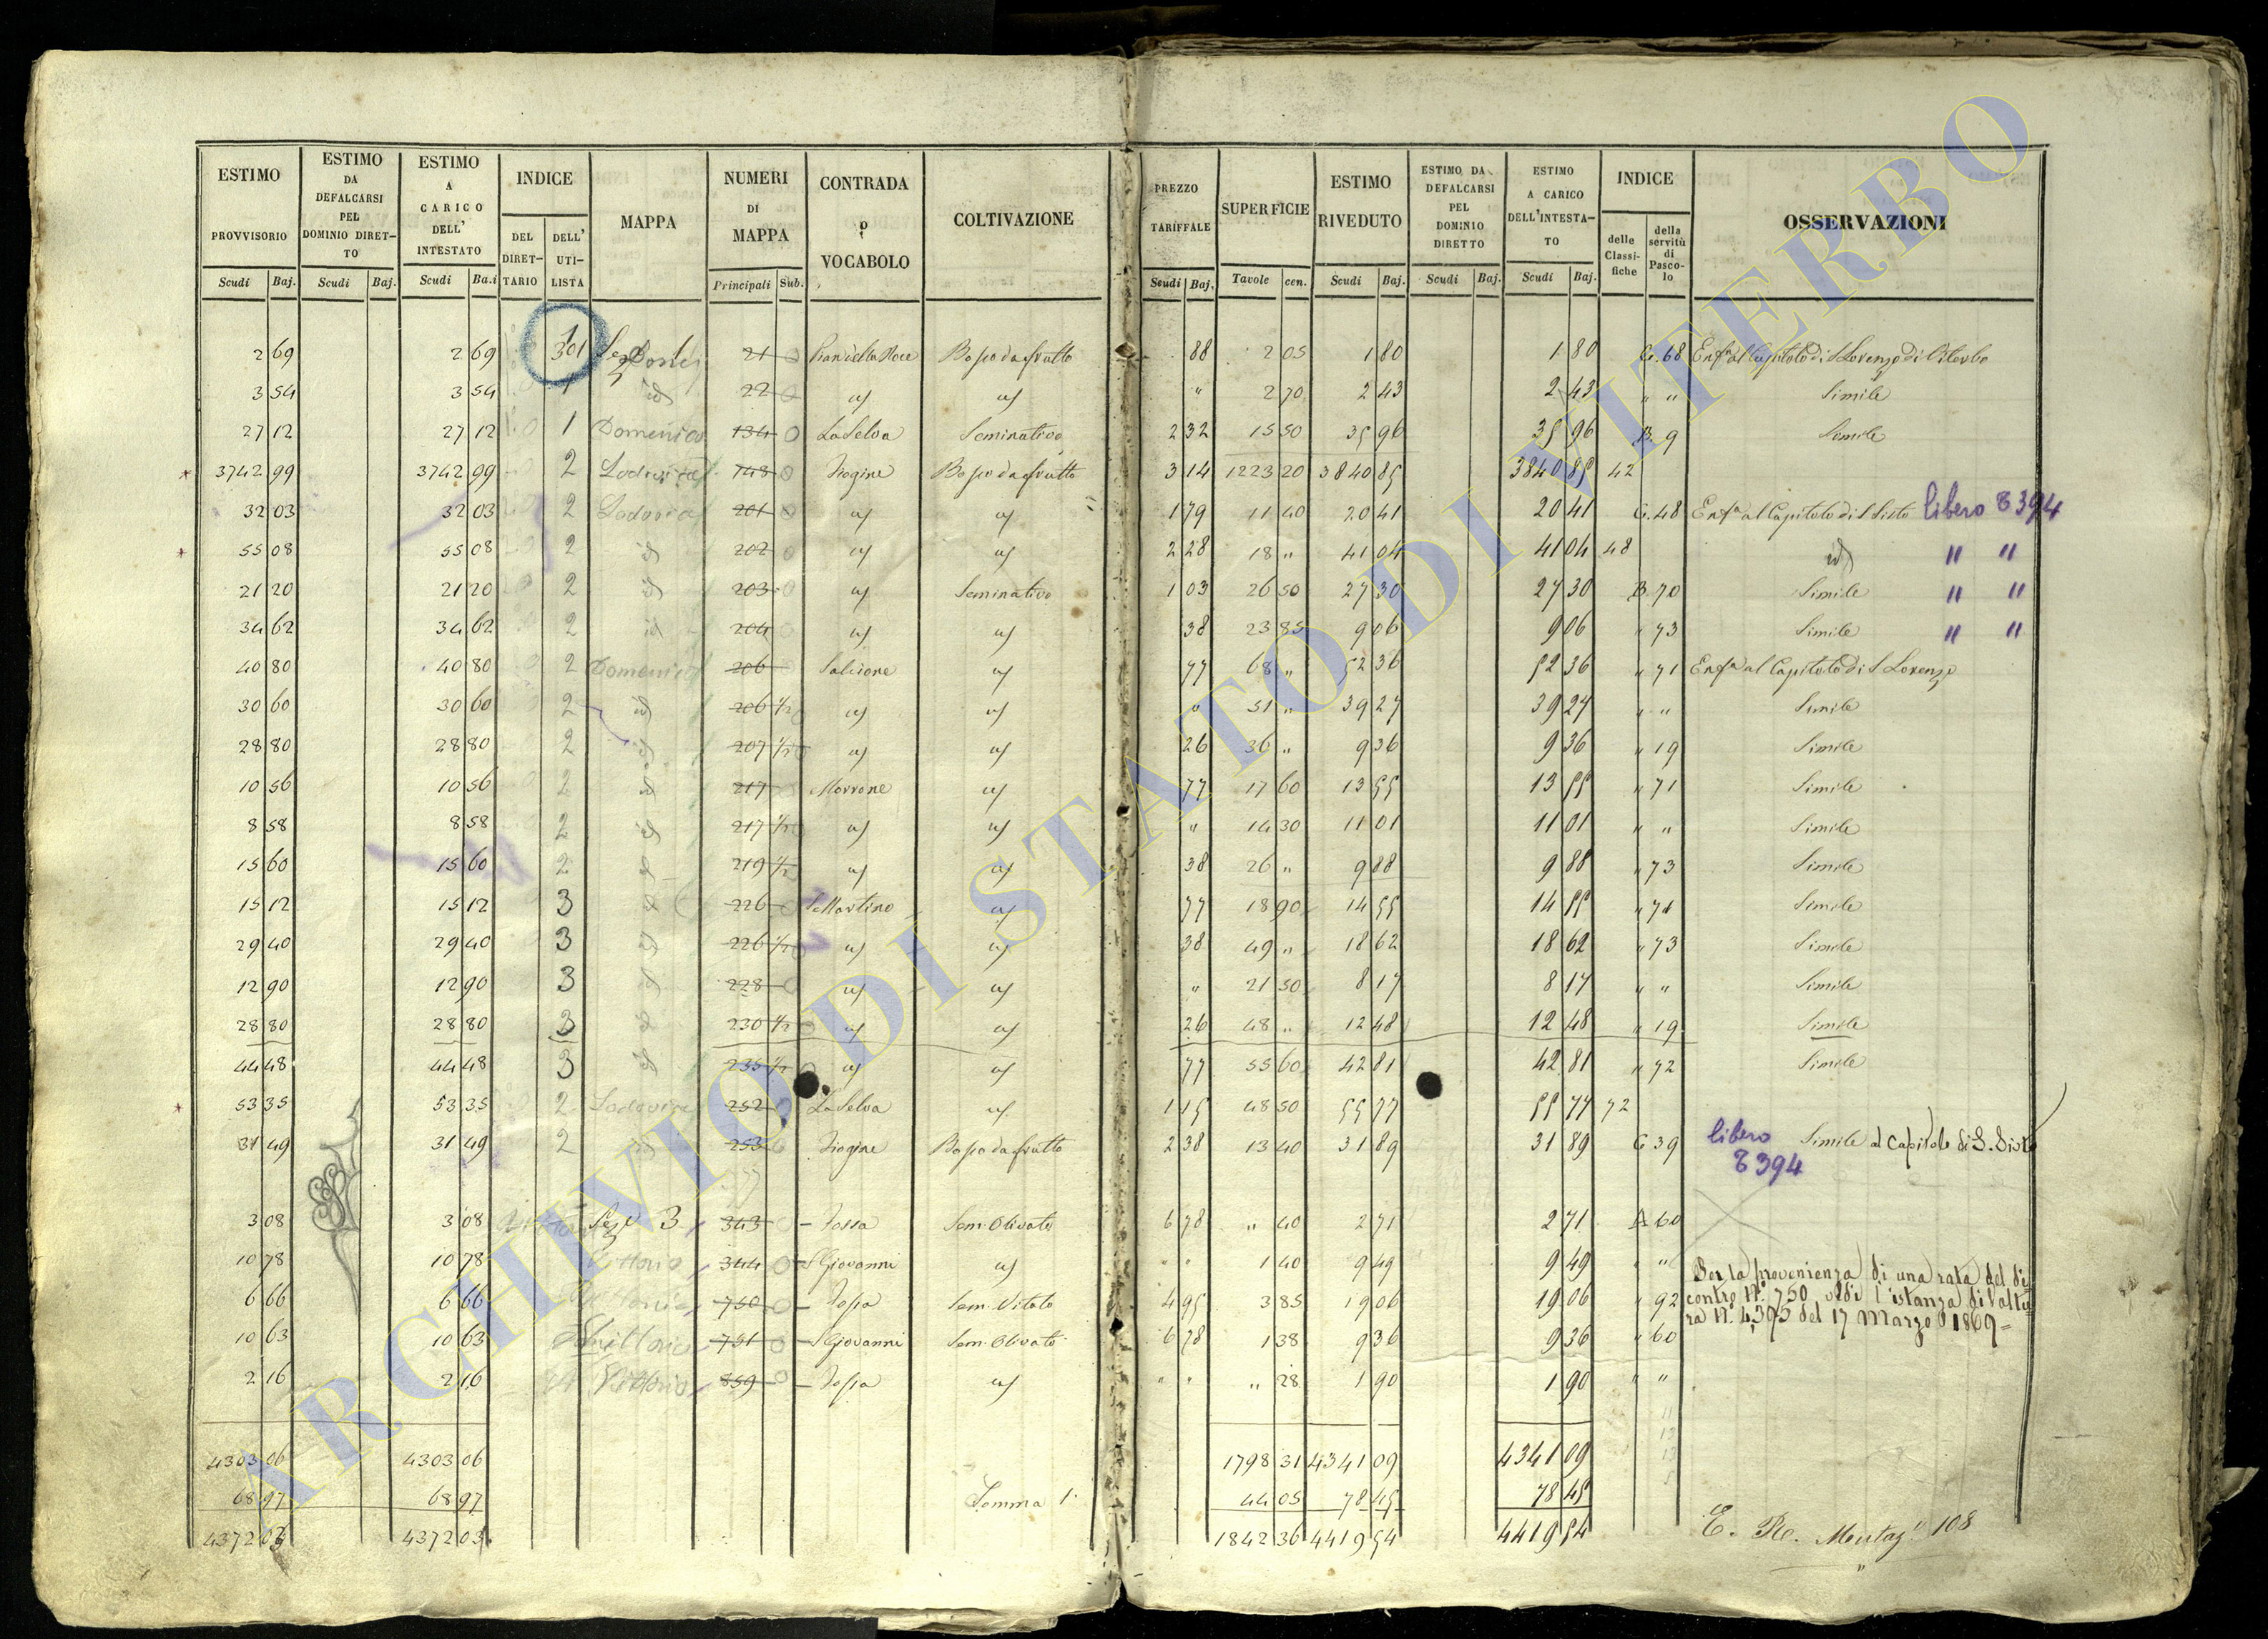 ESTIMO PROVVISORIO Scudi Baj.
ESTIMO DA DEFALCARSI PEL DOMINIO DIRET-TO Scudi Baj.
ESTIMO A CARICO DELL' INTESTATO Scudi Ba.i
INDICE DEL DIRET-TARIO DELL' UTI-LISTA
MAPPA
NUMERI DI MAPPA Principali Sub.
CONTRADA o VOCABOLO
COLTIVAZIONE
PREZZO TARIFFALE Scudi Baj.
SUPERFICIE Tavole cen.
ESTIMO RIVEDUTO Scudi Baj.
ESTIMO DA DEFALCARSI PEL DOMINIO DIRETTO Scudi Baj.
ESTIMO A CARICO DELL'INTESTA-TO Scudi Baj.
INDICE delle Classi-fiche della servitù di Pasco-lo
OSSERVAZIONI
2 69 2 69 1 301 21 0 Bosco da frutto 88 2 05 1 80 1 80 C. 68 Enfa al Capitolo di S Lorenzo di Viterbo
3 54 3 54 1 id 22 0 " 2 70 2 43 2 43 " " Simile
27 12 27 12 1 Domenica 134 0 La Selva Seminativo 2 32 15 50 35 96 35 96 B. 9 Simile
3742 99 3742 99 2 Lodovica 148 0 Frogine Bosco da frutto 3 14 1223 20 3840 85 3840 85 42
32 03 32 03 2 Lodovica 201 0 1 79 11 40 20 41 20 41 C. 48 Enfa al Capitolo di S Sisto libero 8394
55 08 55 08 2 id 202 0 2 28 18 " 41 04 41 04 48 id " "
21 20 21 20 2 id 203 0 Seminativo 1 03 26 50 27 30 27 30 B. 70 Simile " "
34 62 34 62 2 id 204 38 23 85 9 06 9 06 " 73 Simile " "
40 80 40 80 2 Domenica 206 Salcione 77 68 " 52 36 52 36 " 71 Enfa al Capitolo di S Lorenzo
30 60 30 60 2 id 206 1/2 " 51 " 39 27 39 27 " " Simile
28 80 28 80 2 id 207 1/2 26 36 " 9 36 9 36 " 19 Simile
10 56 10 56 2 id 217 Morrone 77 17 60 13 55 13 55 " 71 Simile
8 58 8 58 2 id 217 1/2 " 14 30 11 01 11 01 " " Simile
15 60 15 60 2 id 219 1/2 38 26 " 9 88 9 88 " 73 Simile
15 12 15 12 3 id 226 0 S Martino 77 18 90 14 55 14 55 " 71 Simile
29 40 29 40 3 id 226 1/2 38 49 " 18 62 18 62 " 73 Simile
12 90 12 90 3 id 228 0 " 21 50 8 17 8 17 " " Simile
28 80 28 80 3 id 230 1/2 26 48 " 12 48 12 48 " 19 Simile
44 48 44 48 3 id 235 1/2 77 55 60 42 81 42 81 " 72 Simile
53 35 53 35 2 Lodovica 252 0 La Selva 1 15 48 50 55 77 55 77 72
31 49 31 49 2 id 253 0 Frogine Bosco da frutto 2 38 13 40 31 89 31 89 C 39 libero 8394 Simile al Capitolo di S. Sisto
3 08 3 08 Seze 3 343 0 Fossa Sem. Olivato 6 78 " 40 2 71 2 71 A 60
10 78 10 78 Vittoria 344 0 S Giovanni " " 1 40 9 49 9 49 " "
6 66 6 66 750 0 Fossa Sem. Vitato 4 95 3 85 19 06 19 06 " 92
10 63 10 63 Vittoria 751 0 S Giovanni Sem. Olivato 6 78 1 38 9 36 9 36 " 60
2 16 2 16 Vittoria 859 0 Fossa " " " 28 1 90 1 90 " "
Per la provenienza di una rata del di
contro N.° 750 vedi l'istanza di Voltu
ra N.° 4395 del 17 Marzo 1869 =
4303 06 4303 06 1798 31 4341 09 4341 09
68 97 68 97 Somma 1° 44 05 78 45 78 45
4372 03 4372 03 1842 36 4419 54 4419 54
108
ARCHIVIO DI STATO DI VITERBO